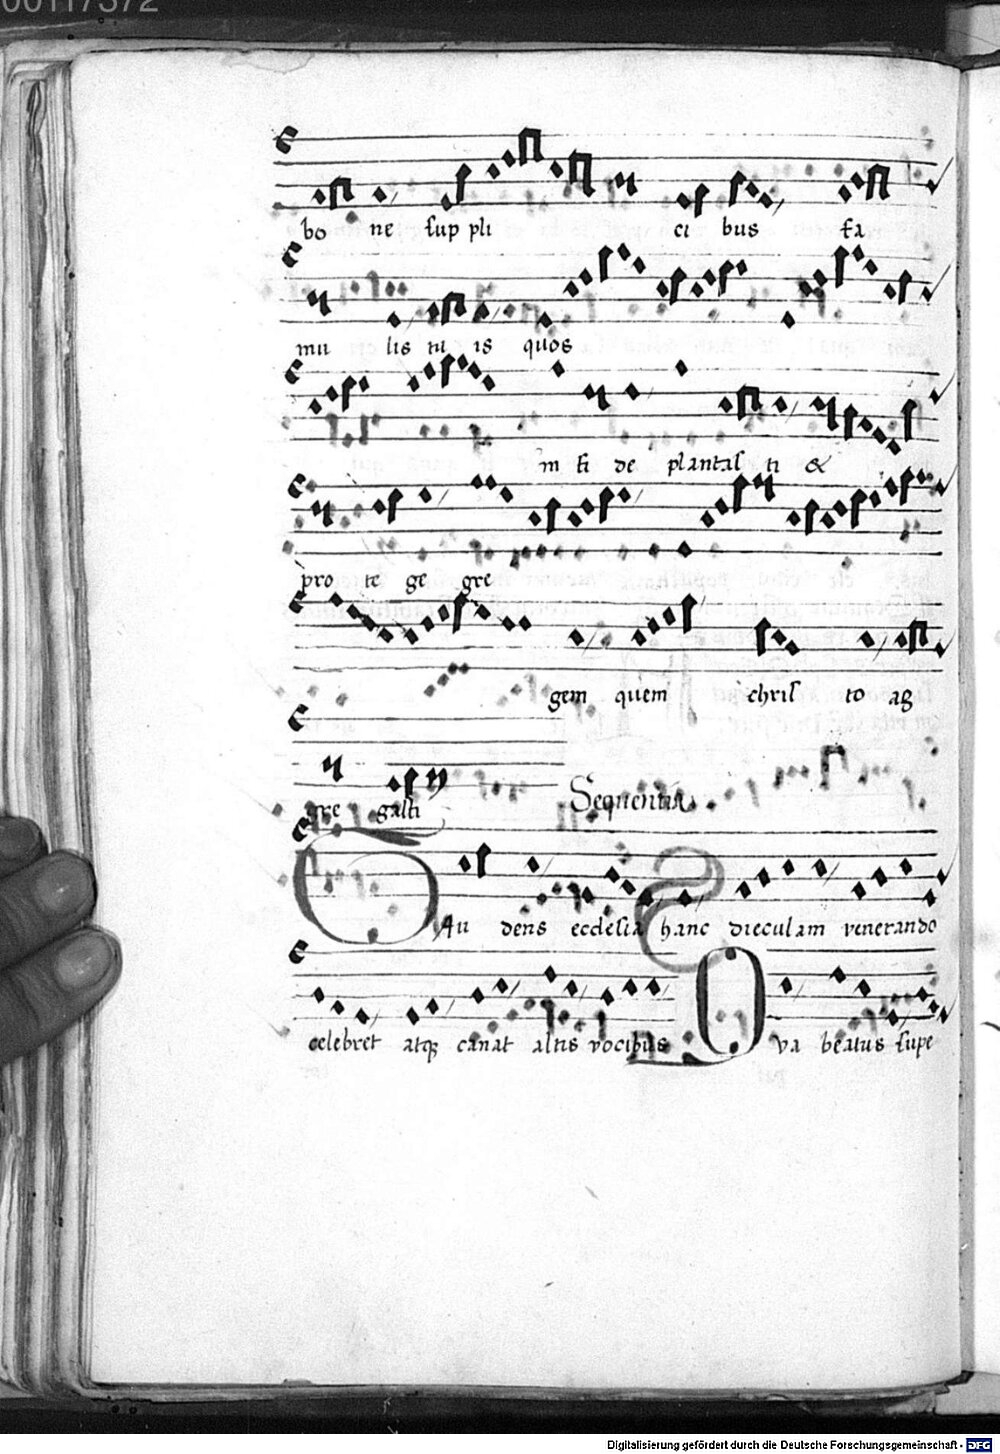 00117372
bo ne sup pli ci bus fa
mu lis tu is quos
in fi de plantas ti &
pro te ge gre
gem quem chris to ag
gre gasti Sequentia
GAu dens ecclesia hanc dieculam venerando
celebret atq; canat altis vocibus Qva beatus supe
Digitalisierung gefördert durch die Deutsche Forschungsgemeinschaft - DFG